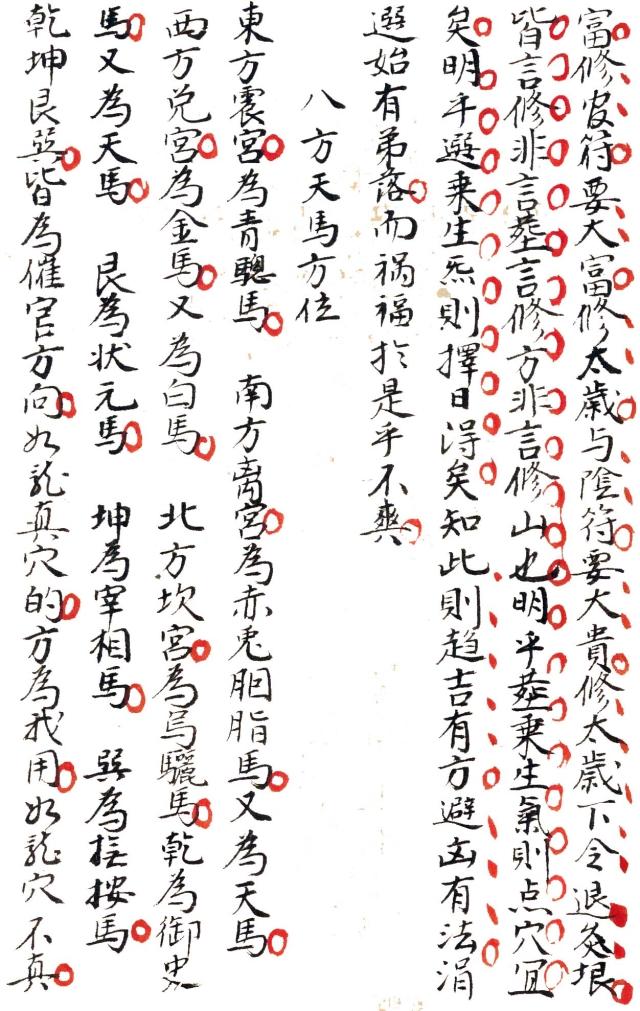 富修官符要大富修太歲与陰符要大貴修太歲下令退灸垠
皆言修非言塟言修方非言修山也明乎塟乗生氣則点穴宜
矣明乎選乗生炁則擇日淂矣知此則趋吉有方避凶有法涓
選始有苐落而禍福扵是乎不爽
八方天馬方位
東方震宮為青驄馬 南方离宮為赤兎胭脂馬又為天馬
西方兌宮為金馬又為白馬 北方坎宮為烏驪馬乾為御史
馬又為天馬 艮為状元馬 坤為宰相馬 巽為撫按馬
乾坤艮巽皆為催官方向如龍真穴的方為我用如龍穴不真